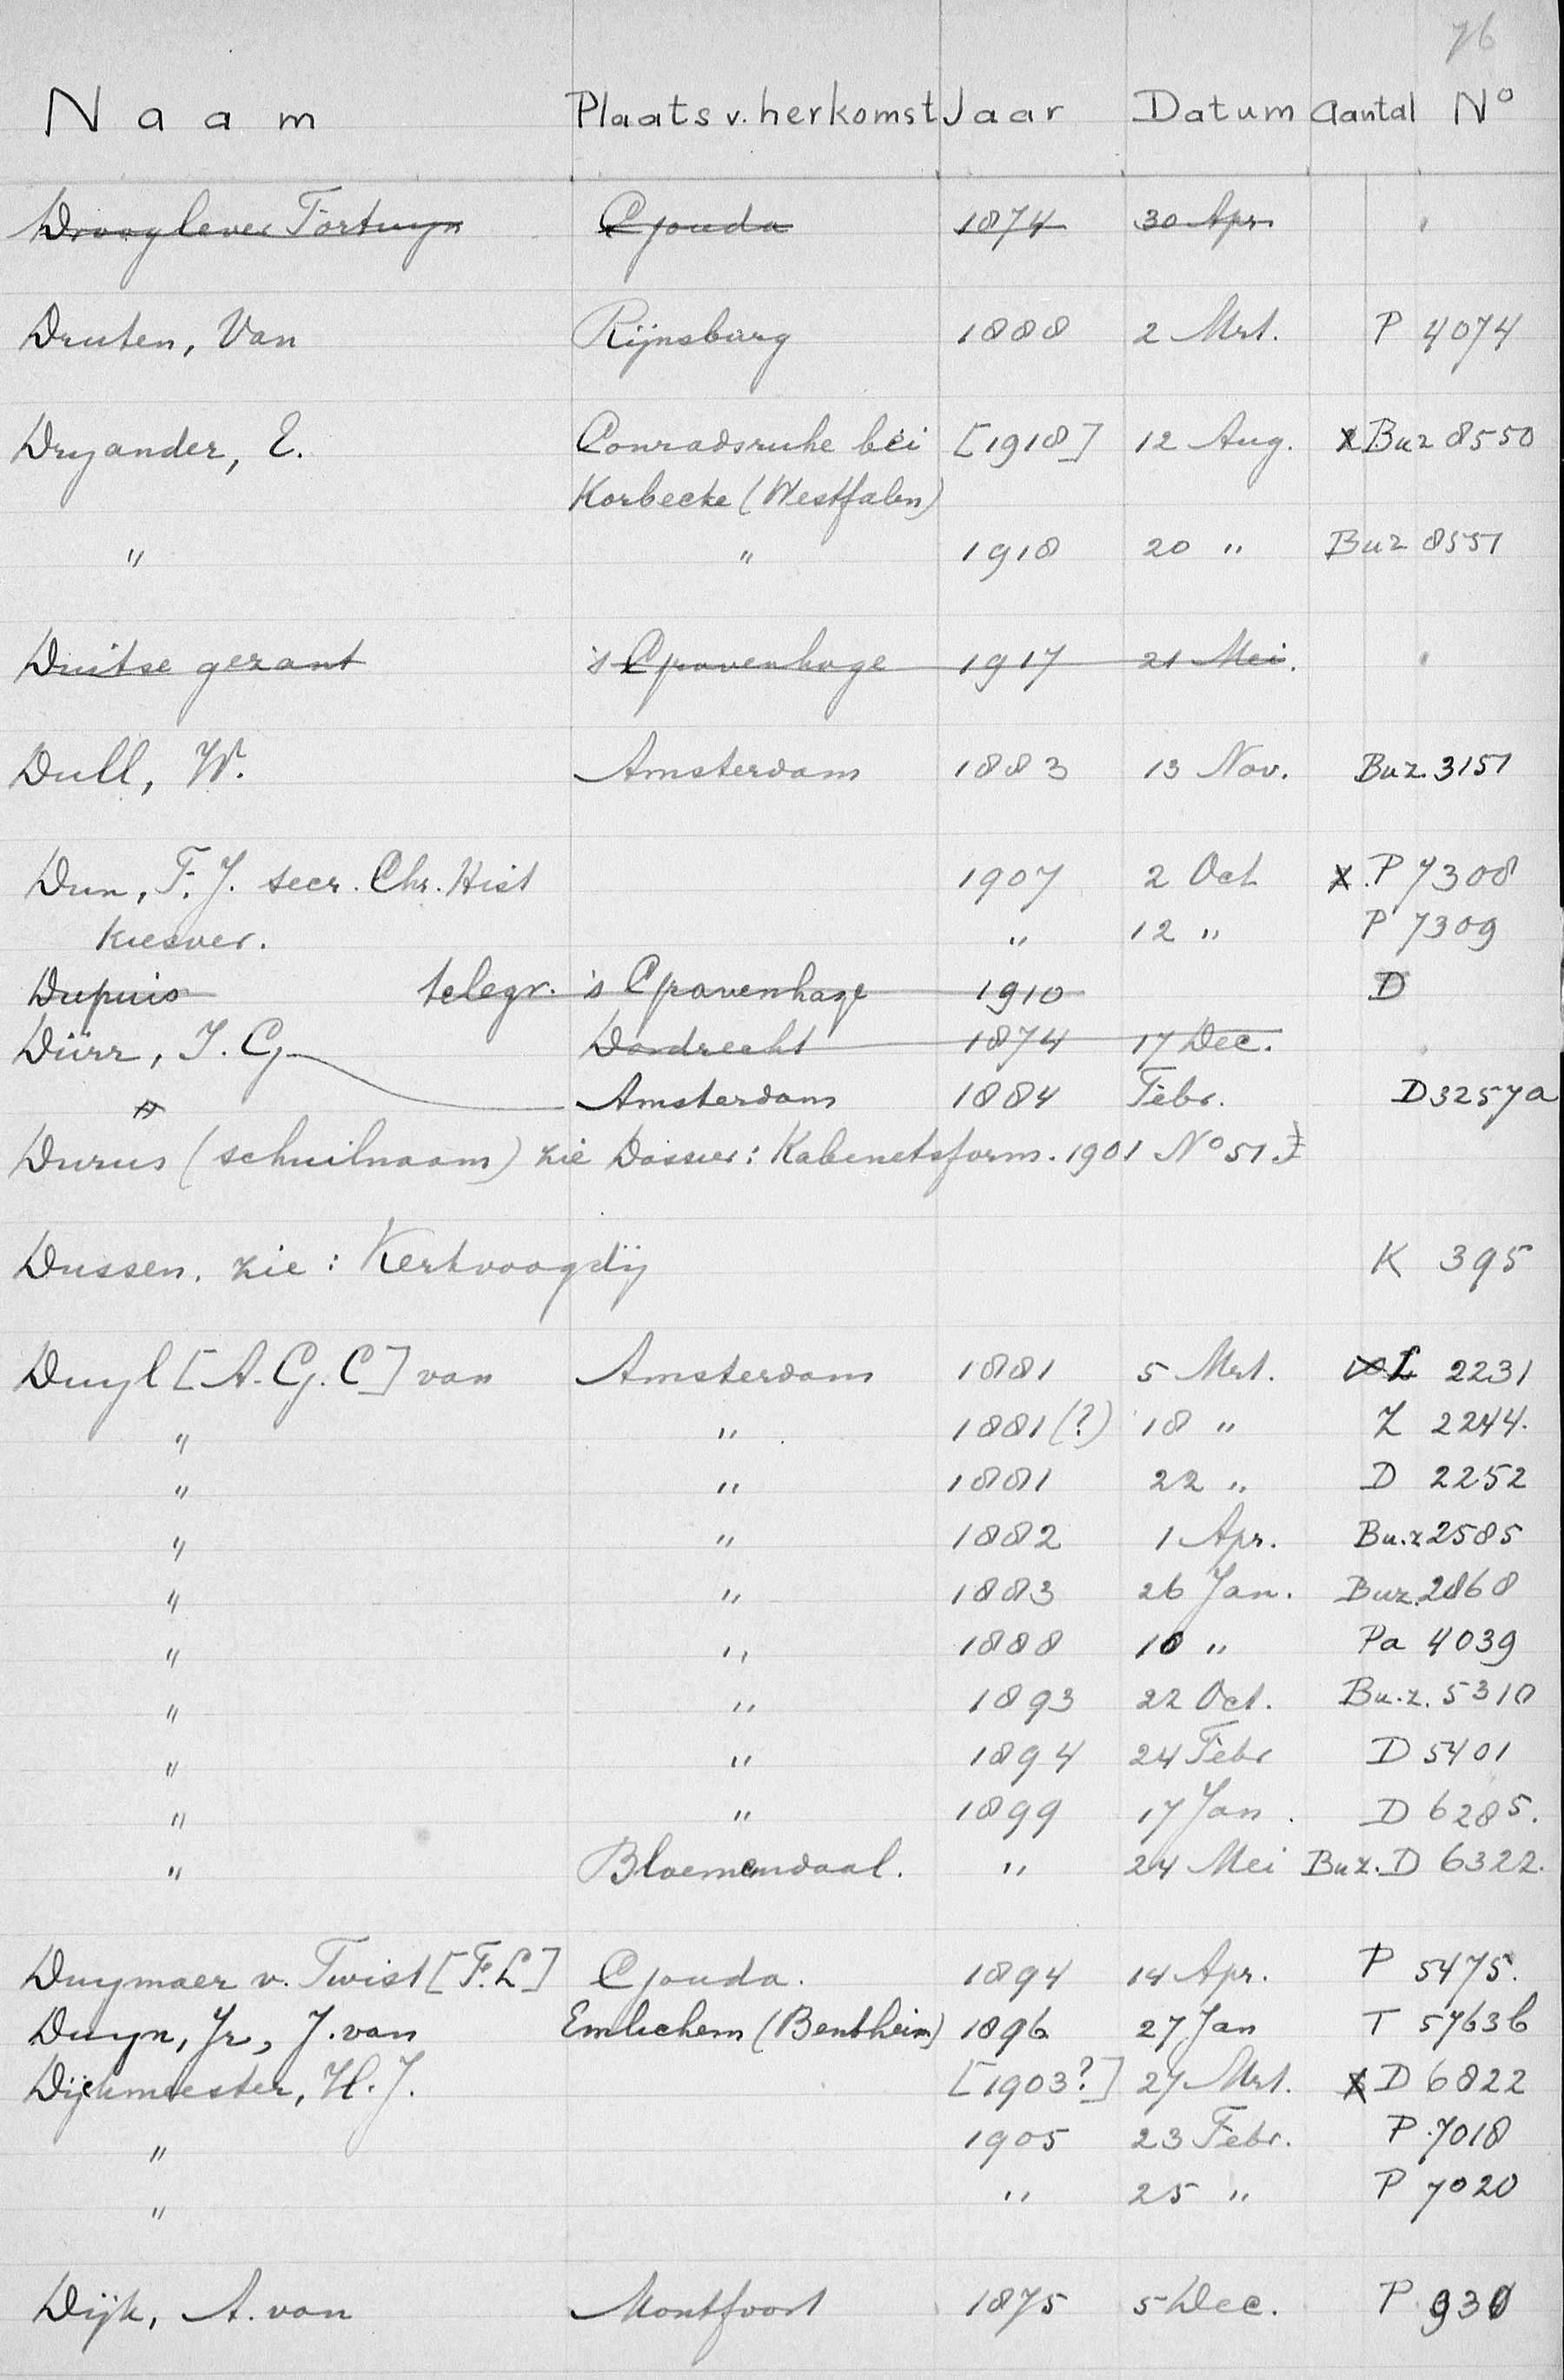 76
Naam Plaats v. herkomst Jaar Datum Aantal No
Drooglever Fortuyn Gouda 1874 30 Apr.
Druten, Van Rijnsburg 1888 2 Mrt. P 4074
Dryander, E. Conradsruhe bei [1918] 12 Aug. Buz 8550
Korbecke (Westfalen)
" " 1918 20 " Buz 8551
Duitse gezant 's Gravenhage 1917 21 Mei.
Dull, W. Amsterdam 1883 13 Nov. Buz. 3151
Dun, F. J. secr. Chr. Hist 1907 2 Oct X P 7308
Kiesver. " 12 " P 7309
Dupuis telegr. 's Gravenhage 1910 D
Dürr, J. G. Dordrecht 1874 17 Dec.
" Amsterdam 1884 Febr. D3257a
Durus (schuilnaam) zie Dossier: Kabinetsform. 1901 No 51
Dussen. zie: Kerkvoogdij K 395
Duyl [A. G. C] van Amsterdam 1881 5 Mrt. L 2231
" " 1881(?) 18 " Z 2244.
" " 1881 22 " D 2252
" " 1882 1 Apr. Bu.z 2585
" " 1883 26 Jan. Buz. 2868
" " 1888 10 " Pa 4039
" " 1893 22 Oct. Bu.z. 5310
" " 1894 24 Febr D 5401
" " 1899 17 Jan. D 6285.
" Bloemendaal. " 24 Mei Buz. D 6322.
Duymaer v. Twist [F. L] Gouda. 1894 14 Apr. P 5475.
Duyn, Jr, J. van Emlichem (Bentheim) 1896 27 Jan T 5763b
Dijckmeester, H. J. [1903?] 27 Mrt. X D 6822
" 1905 23 Febr. P 7018
" " 25 " P 7020
Dijk, A. van Montfoort 1875 5 Dec. P 930